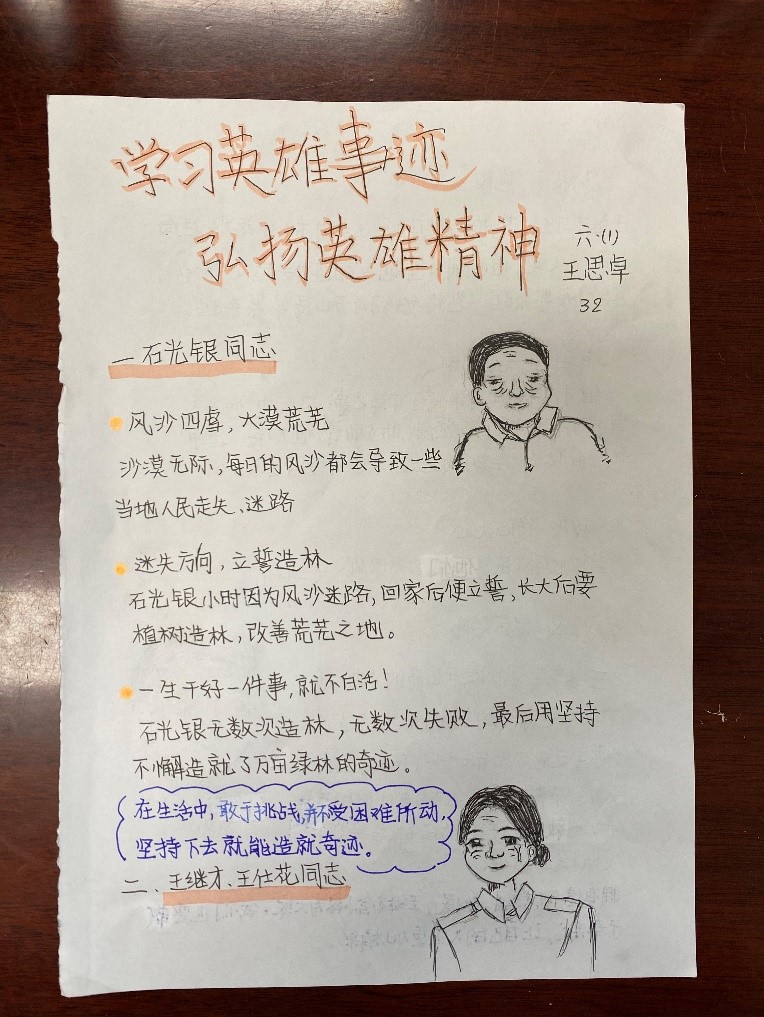 学习英雄事迹
弘扬英雄精神
六·(1)
王思卓
32
一 石光银同志
风沙四虐，大漠荒芜
沙漠无际，每日的风沙都会导致一些
当地人民走失、迷路
迷失方向，立誓造林
石光银小时因为风沙迷路，回家后便立誓，长大后要
植树造林，改善荒芜之地。
一生干好一件事，就不白活！
石光银无数次造林，无数次失败，最后用坚持
不懈造就了万亩绿林的奇迹。
在生活中，敢于挑战，并不受困难所动，
坚持下去就能造就奇迹。
二、王继才、王仕花同志